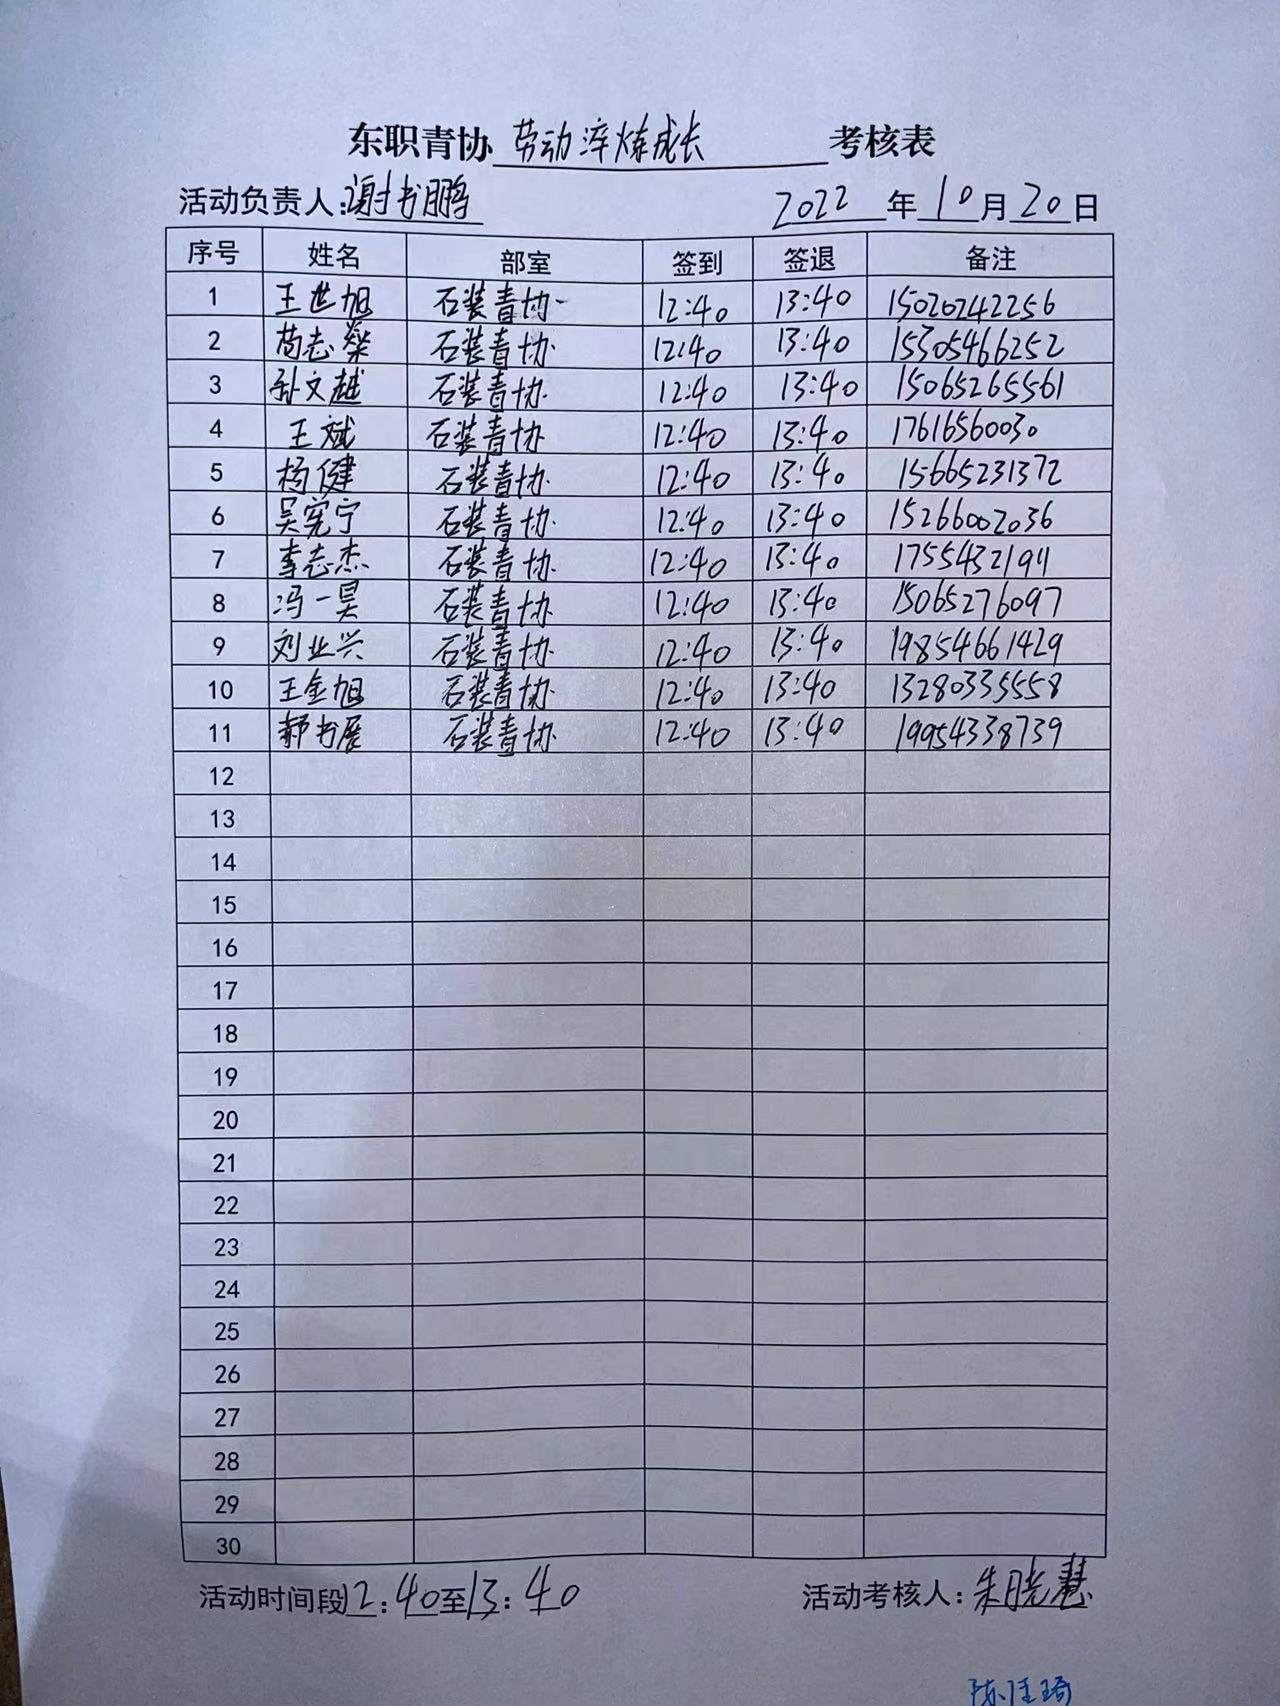 东职青协 劳动淬炼成长 考核表
活动负责人:谢书鹏 2022 年 10 月 20 日
序号 姓名 部室 签到 签退 备注
1 王世旭 石装青协 12:40 13:40 15020242256
2 苟志燊 石装青协 12:40 13:40 15305466252
3 孙文越 石装青协 12:40 13:40 15065265561
4 王斌 石装青协 12:40 13:40 17616560030
5 杨健 石装青协 12:40 13:40 15665231372
6 吴宪宁 石装青协 12:40 13:40 15266002036
7 李志杰 石装青协 12:40 13:40 17554321911
8 冯一昊 石装青协 12:40 13:40 15065276097
9 刘业兴 石装青协 12:40 13:40 19854661429
10 王金旭 石装青协 12:40 13:40 13280335558
11 郝书展 石装青协 12:40 13:40 19954338739
12
13
14
15
16
17
18
19
20
21
22
23
24
25
26
27
28
29
30
活动时间段12:40至13:40 活动考核人:朱晓慧
陈佳琦